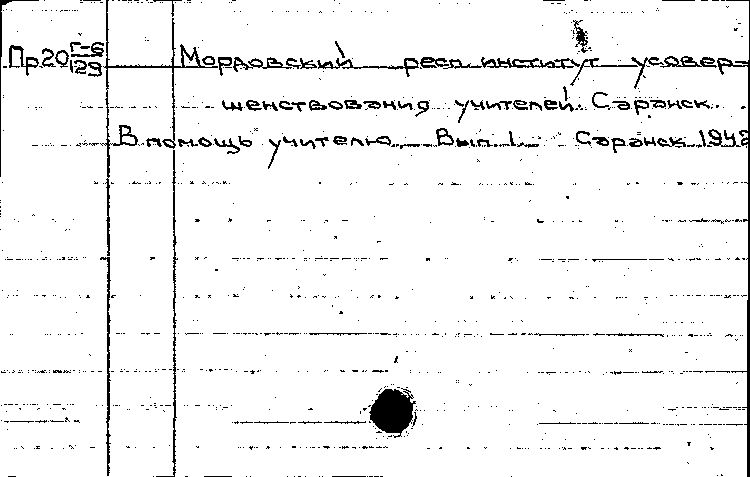 Пр20 Г-6/129 Мордовский респ. институт усовер-
шенствования учителей. Саранск.
В помощь учителю. Вып. 1. Саранск 1942